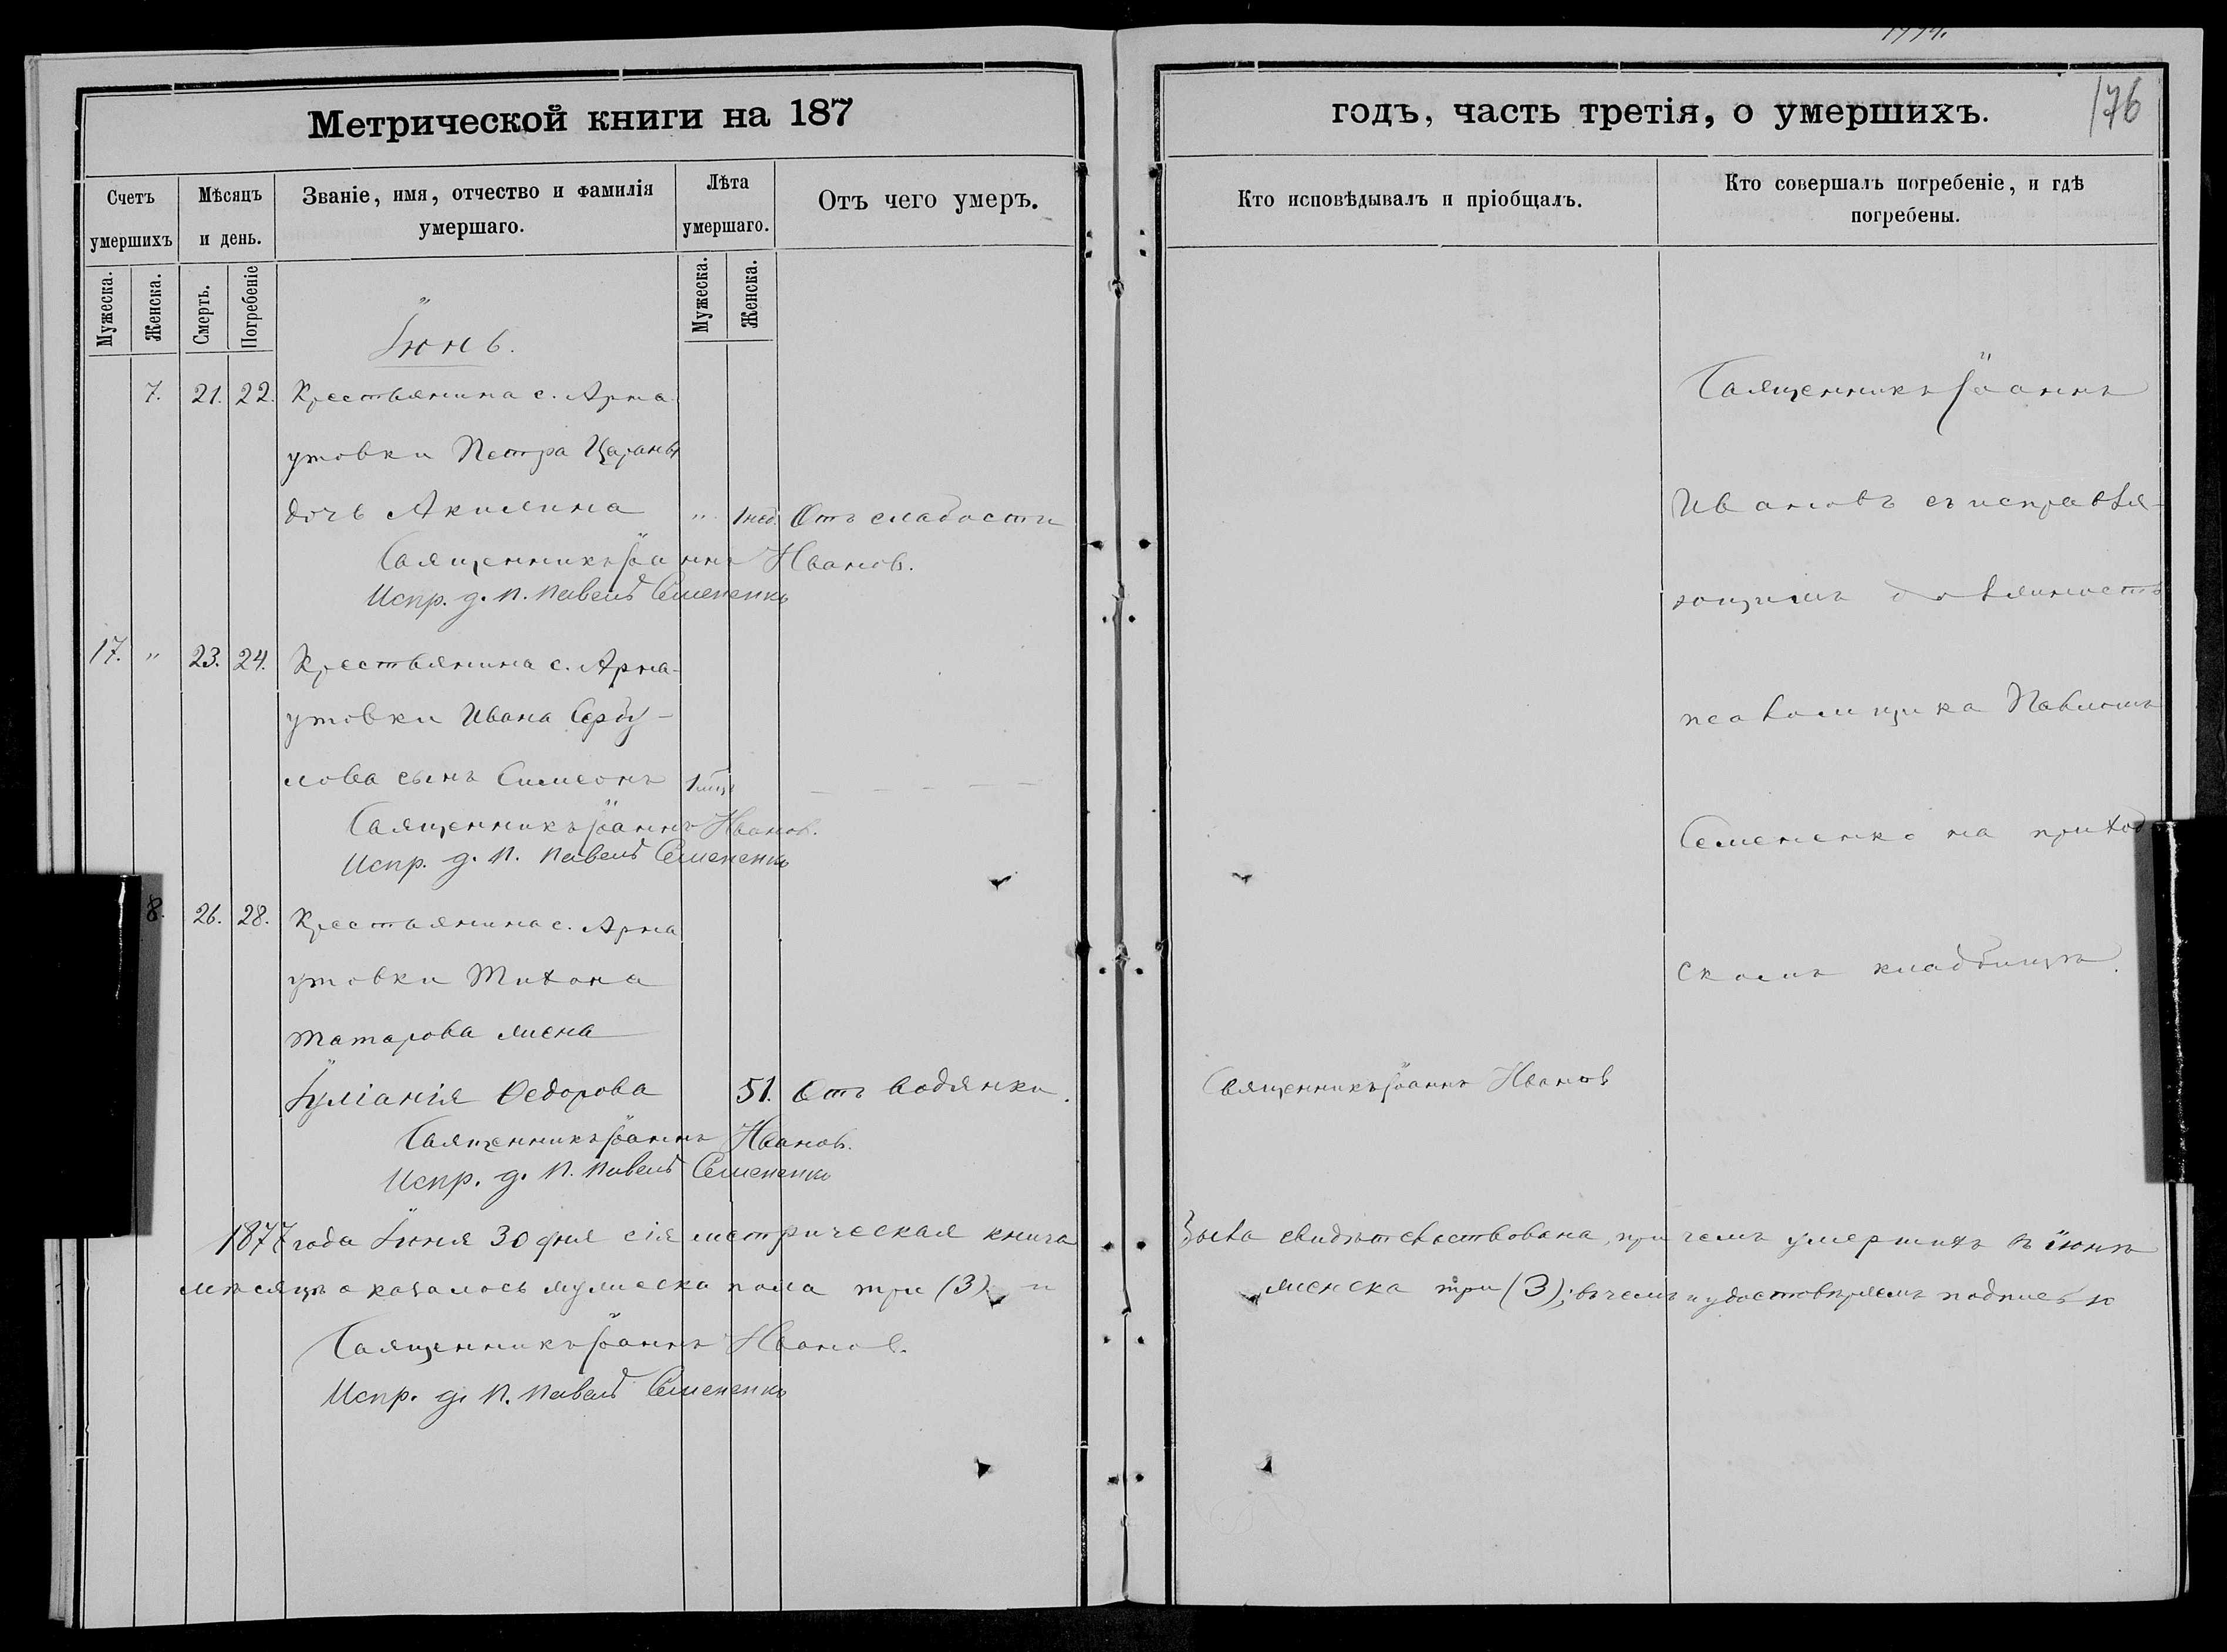 Метрической книги на 187
Счетъ умершихъ
Мѣсяцъ и день.
Званіе, имя, отчество и фамилія умершаго.
Лѣта умершаго.
Отъ чего умеръ.
Мужеска.
Женска.
Смерть.
Погребеніе
Мужеска.
Женска.
Іюнь.
7. 21. 22. Крестьянина с. Арна-
утовки Петра Цараны
дочь Акилина " 1 нед. Отъ слабости
Священникъ Іоаннъ Иванов.
Испр. д. п. Павелъ Семененко
17. " 23. 24. Крестьянина с. Арна-
утовки Ивана Сербу-
лова сынъ Симеонъ 1 мцъ — — — — —
Священникъ Іоаннъ Иванов.
Испр. д. п. Павелъ Семененко
8. 26. 28. Крестьянина с. Арна
утовки Тихона
Татарова жена
Іуліанія Федорова 51. Отъ водянки.
Священникъ Іоаннъ Иванов.
Испр. д. п. Павелъ Семененко
1877 года Іюня 30 дня сія метрическая книга
мѣсяцѣ оказалось мужеска пола три (3) и
Священникъ Іоаннъ Иванов.
Испр. д. п. Павелъ Семененко
годъ, часть третія, о умершихъ.
176
Кто исповѣдывалъ и пріобщалъ.
Кто совершалъ погребеніе, и гдѣ
погребены.
Священникъ Іоаннъ
Ивановъ съ исправля-
ющимъ должность
псаломщика Павломъ
Семененко на приход
скомъ кладбищѣ.
Священникъ Іоаннъ Иванов
была свидѣтельствована, при чемъ умершихъ въ іюнѣ
женска три (3); въ чемъ и удостовѣряемъ подписью